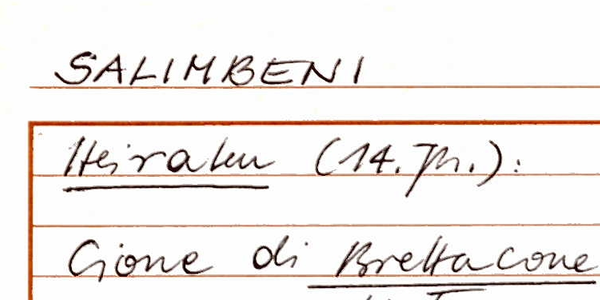 SALIMBENI
Heiraten (14. Jh.):
Cione di Brettacone